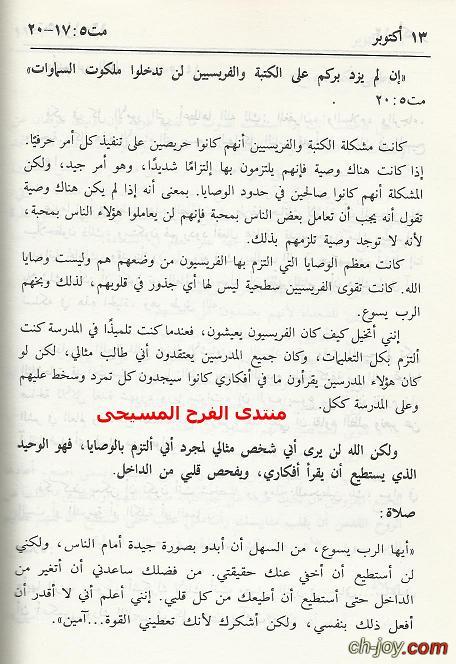 ١٣ أكتوبر
مت٥: ١٧-٢٠
«إن لم يزد بركم على الكتبة والفريسيين لن تدخلوا ملكوت السماوات»
مت٥: ٢٠ .
كانت مشكلة الكتبة والفريسيين أنهم كانوا حريصين على تنفيذ كل أمر حرفيًا.
إذا كانت هناك وصية فإنهم يلتزمون بها إلتزامًا شديدًا، وهو أمر جيد، ولكن
المشكلة أنهم كانوا صالحين في حدود الوصايا. بمعنى أنه إذا لم يكن هناك وصية
تقول أنه يجب أن تعامل بعض الناس بمحبة فإنهم لن يعاملوا هؤلاء الناس بمحبة،
لأنه لا توجد وصية تلزمهم بذلك.
كانت معظم الوصايا التي التزم بها الفريسيون من وضعهم هم وليست وصايا
الله. كانت تقوى الفريسيين سطحية ليس لها أي جذور في قلوبهم، لذلك وبخهم
الرب يسوع.
إنني أتخيل كيف كان الفريسيون يعيشون، فعندما كنت تلميذًا في المدرسة كنت
ألتزم بكل التعليمات، وكان جميع المدرسين يعتقدون أني طالب مثالي، لكن لو
كان هؤلاء المدرسين يقرأون ما في أفكاري كانوا سيجدون كل تمرد وسخط عليهم
وعلى المدرسة ككل.
منتدى الفرح المسيحى
ولكن الله لن يرى أني شخص مثالي لمجرد أني ألتزم بالوصايا، فهو الوحيد
الذي يستطيع أن يقرأ أفكاري، ويفحص قلبي من الداخل.
صلاة:
«أيها الرب يسوع، من السهل أن أبدو بصورة جيدة أمام الناس، ولكني
لن أستطيع أن أخفي عنك حقيقتي. من فضلك ساعدني أن أتغير من
الداخل حتى أستطيع أن أطيعك من كل قلبي. إنني أعلم أني لا أقدر أن
أفعل ذلك بنفسي، ولكن أشكرك لأنك تعطيني القوة...آمين».
ch-joy.com